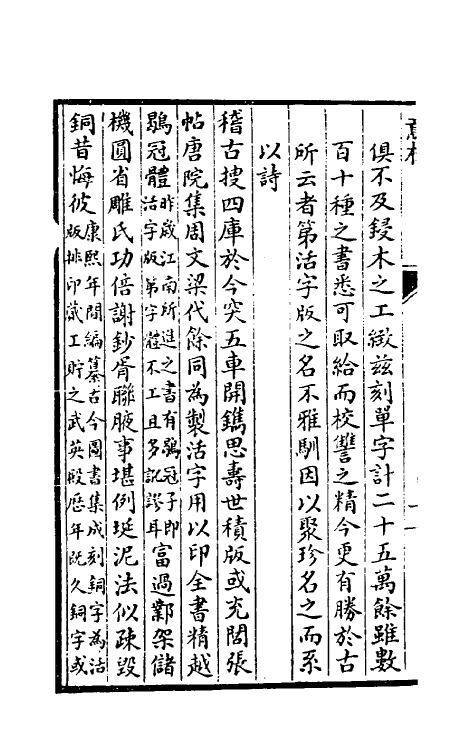 俱不及鋟木之工緻兹刻單字計二十五萬餘雖數
百十種之書悉可取給而校讐之精今更有勝於古
所云者第活字版之名不雅馴因以聚珍名之而系
以詩
稽古搜四庫於今突五車開鐫思壽世積版或充閭張
帖唐院集周文梁代餘同為製活字用以印全書精越
鶡冠體昨歲江南所進之書有鶡冠子即活字版第字體不工且多訛謬耳富過鄴架儲
機圓省雕氏功倍謝鈔胥聯腋事堪例埏泥法似疎毀
銅昔悔彼康熙年間編纂古今圖書集成刻銅字為活版排印蕆工貯之武英殿歴年既久銅字或